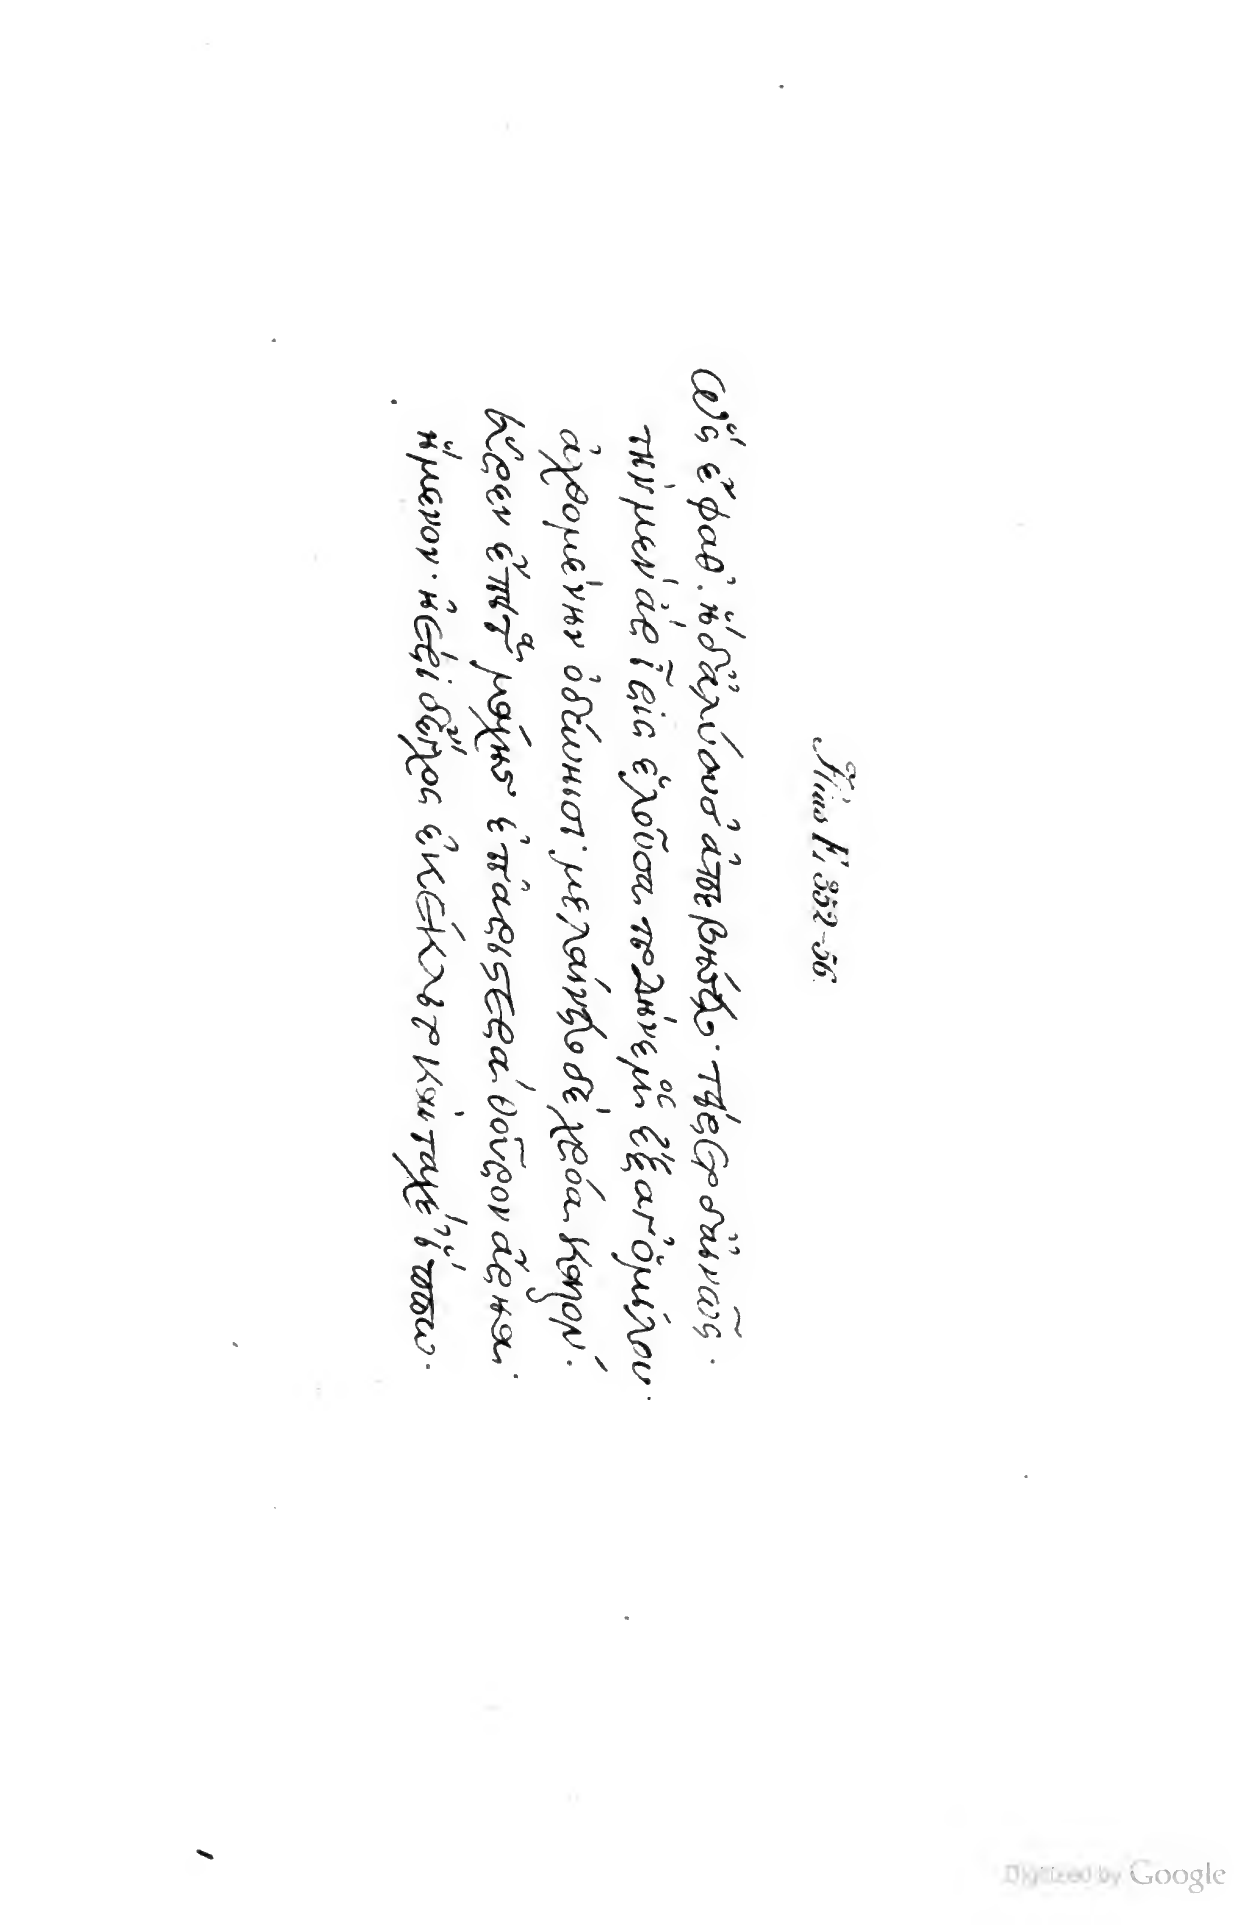 Ilias E, 352-56.
ὣς ἔφαθ· ἡ δ' ἀλύουσ' ἀπεβήσετο· τείρετο δ' αἰνῶς·
τὴν μὲν ἄρ Ἶρις ἑλοῦσα ποδήνεμος ἔξαγ' ὁμίλου·
ἀχθομένην ὀδύνῃσι· μελαίνετο δὲ χρόα καλόν·
εὗρεν ἔπειτα μάχης ἐπ' ἀριστερὰ θοῦρον ἄρηα·
ἥμενον· ἠέρι δ' ἔγχος ἐκέκλιτο καὶ ταχέ' ἵππω·
Digitized by Google